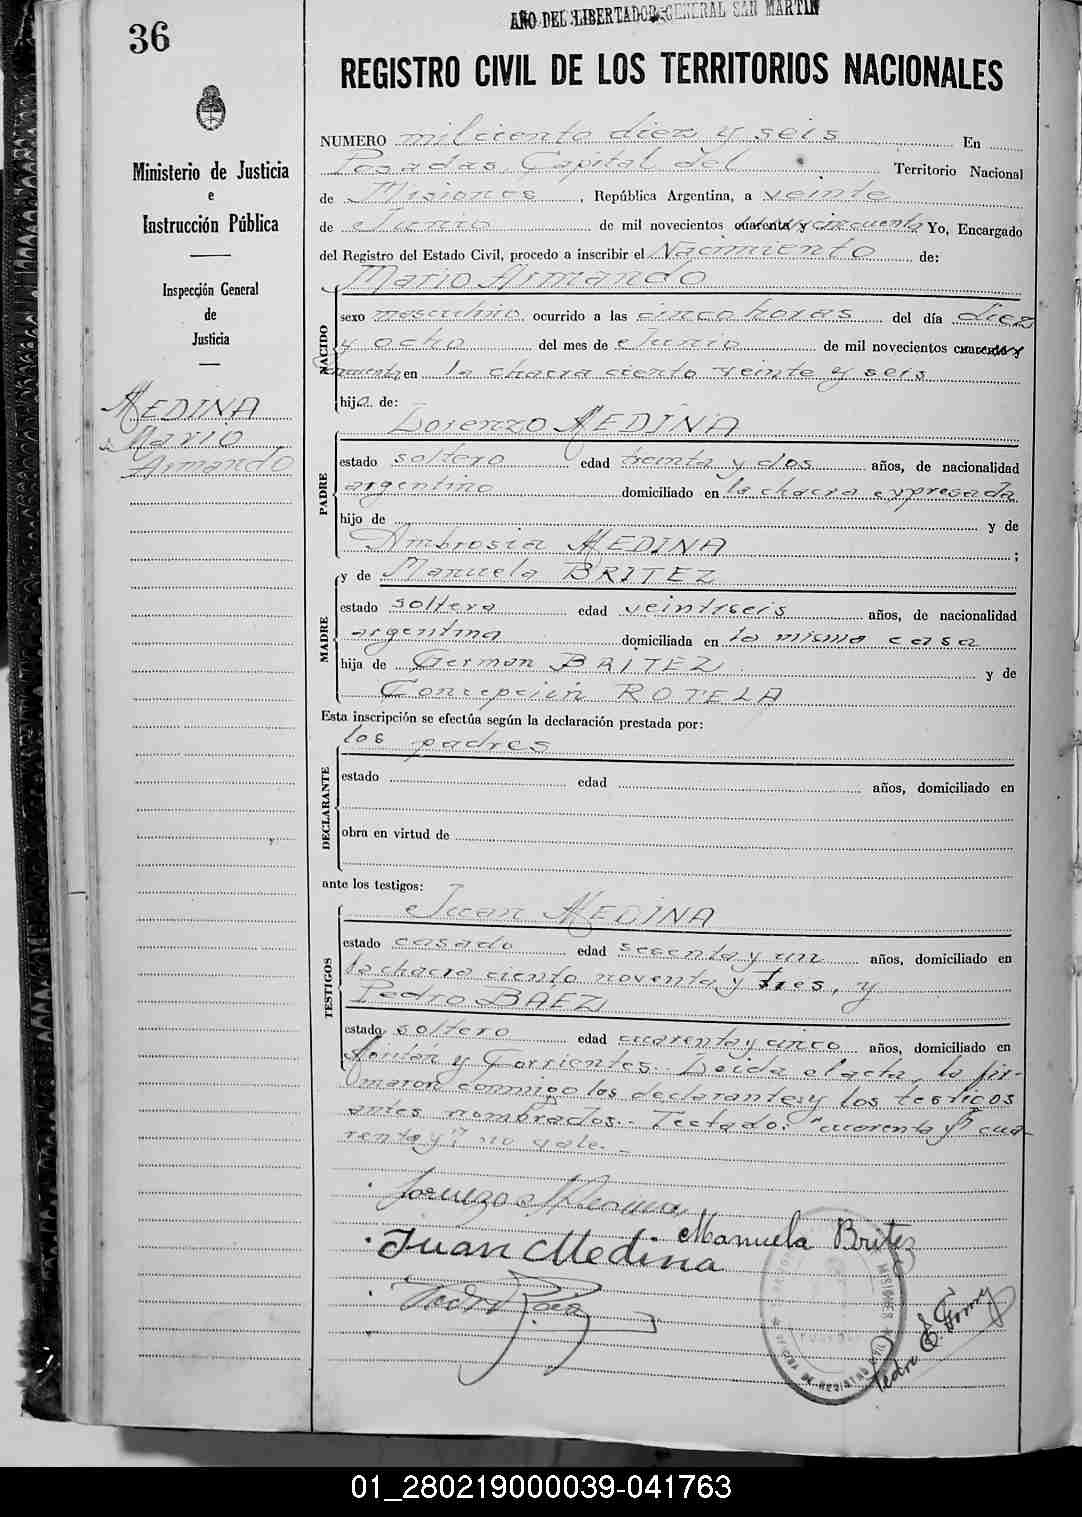 36
AÑO DEL LIBERTADOR GENERAL SAN MARTIN
REGISTRO CIVIL DE LOS TERRITORIOS NACIONALES
Ministerio de Justicia
e
Instrucción Pública
Inspección General
de
Justicia
MEDINA
Mario
Armando
NUMERO mil ciento diez y seis En
Posadas, Capital del Territorio Nacional
de Misiones, República Argentina, a veinte
de Junio de mil novecientos cuarenta y cincuenta Yo, Encargado
del Registro del Estado Civil, procedo a inscribir el Nacimiento de:
Mario Armando
NACIDO
sexo masculino ocurrido a las cinco horas del día diez
y ocho del mes de Junio de mil novecientos cuarenta y
cincuenta en la chacra ciento veinte y seis
hijo de:
Lorenzo MEDINA
PADRE
estado soltero edad treinta y dos años, de nacionalidad
argentino domiciliado en la chacra expresada
hijo de y de
Ambrosia MEDINA ;
y de Manuela BRITEZ
MADRE
estado soltera edad veintiseis años, de nacionalidad
argentina domiciliada en la misma casa
hija de German BRITEZ y de
Concepción ROTELA
Esta inscripción se efectúa según la declaración prestada por:
los padres
DECLARANTE
estado edad años, domiciliado en
obra en virtud de
ante los testigos:
Juan MEDINA
TESTIGOS
estado casado edad sesenta y un años, domiciliado en
la chacra ciento noventa y tres, y
Pedro BAEZ
estado soltero edad cuarenta y cinco años, domiciliado en
y Corrientes. Leida el acta, la fir-
maron conmigo los declarantes y los testigos
antes nombrados.- Testado: "cuarenta y" cua-
renta y" no vale.-
Lorenzo Medina
Manuela Britez
Juan Medina
Pedro Baez
OFICINA DE REGISTRO CIVIL
MISIONES
Pedro E.
01_280219000039-041763